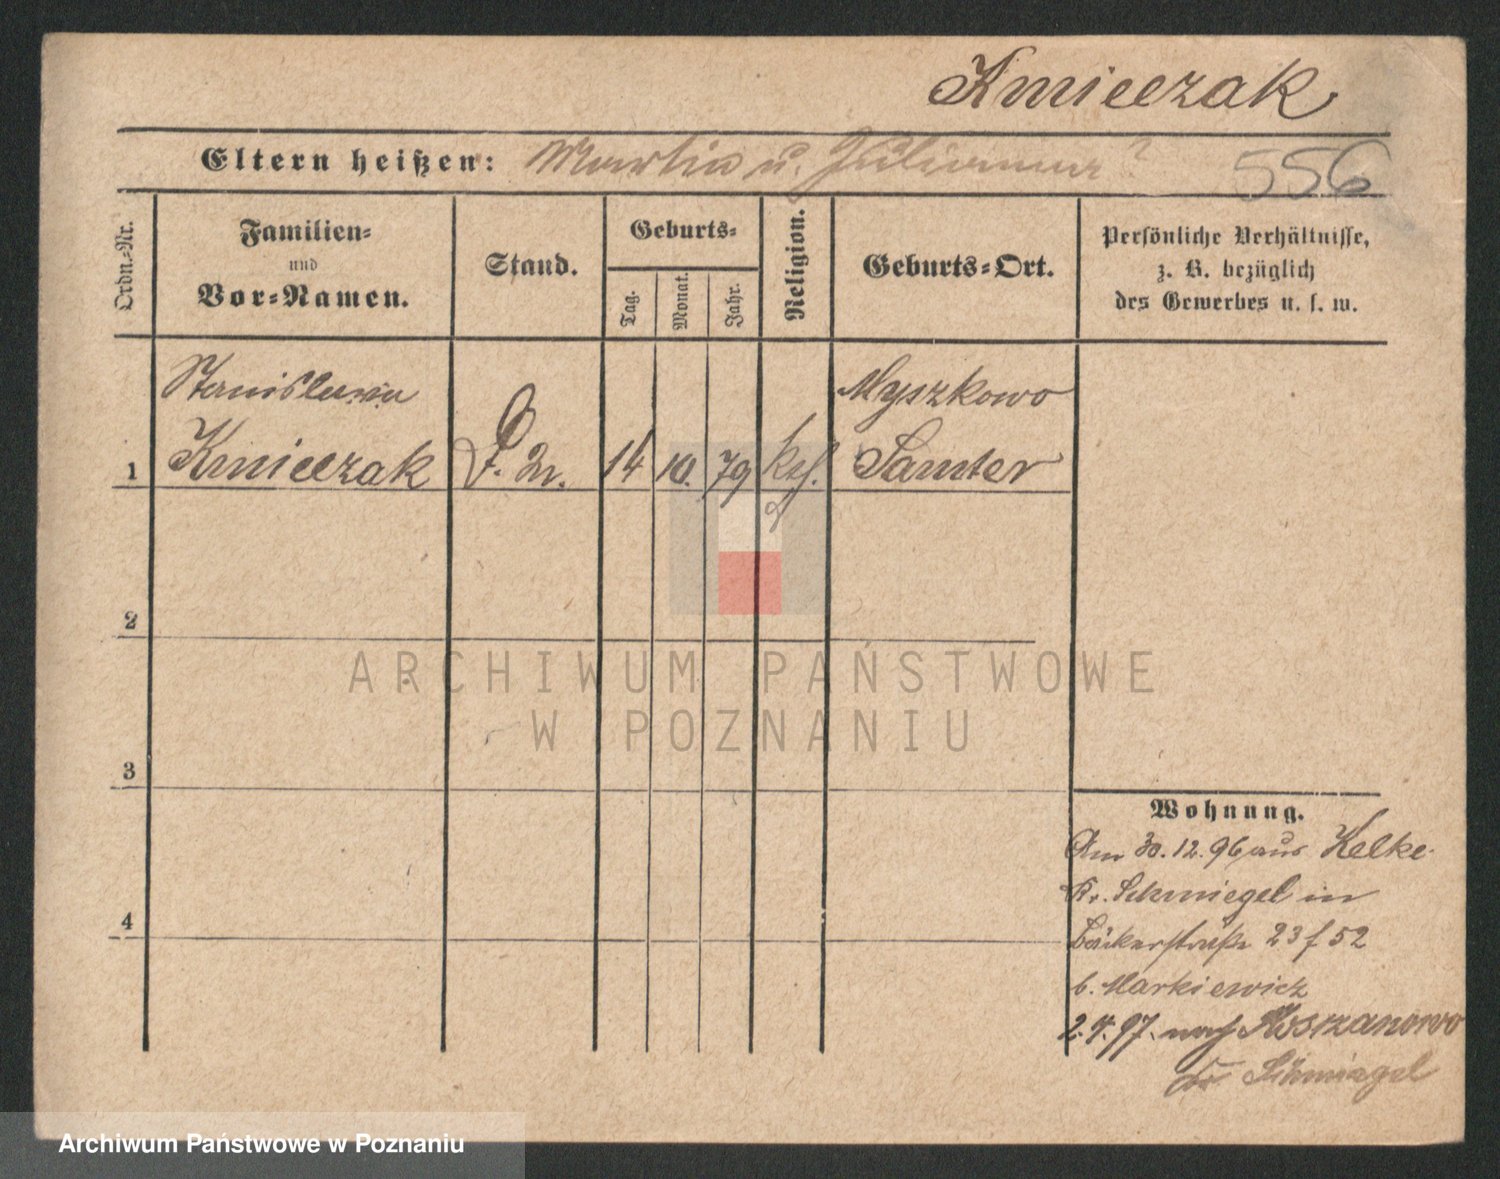 Kmieczak
Eltern heißen: Martin u. Julianna ?
556
Ordn.=Nr.
Familien=
und
Vor=Namen.
Stand.
Geburts=
Tag.
Monat.
Jahr.
Religion.
Geburts=Ort.
Persönliche Verhältnisse,
z. B. bezüglich
des Gewerbes u. s. w.
Stanislawa
Myszkowo
1 Kmieczak 14 10. 79 kth. Samter
2
3
4
Wohnung.
Am 30.12.96 aus Kelke
Kr. Schmiegel in
Bäckerstraße 23 f 52
b. Markiewicz
2.4.97. nach
Kr Schmiegel
ARCHIWUM PAŃSTWOWE
W POZNANIU
Archiwum Państwowe w Poznaniu